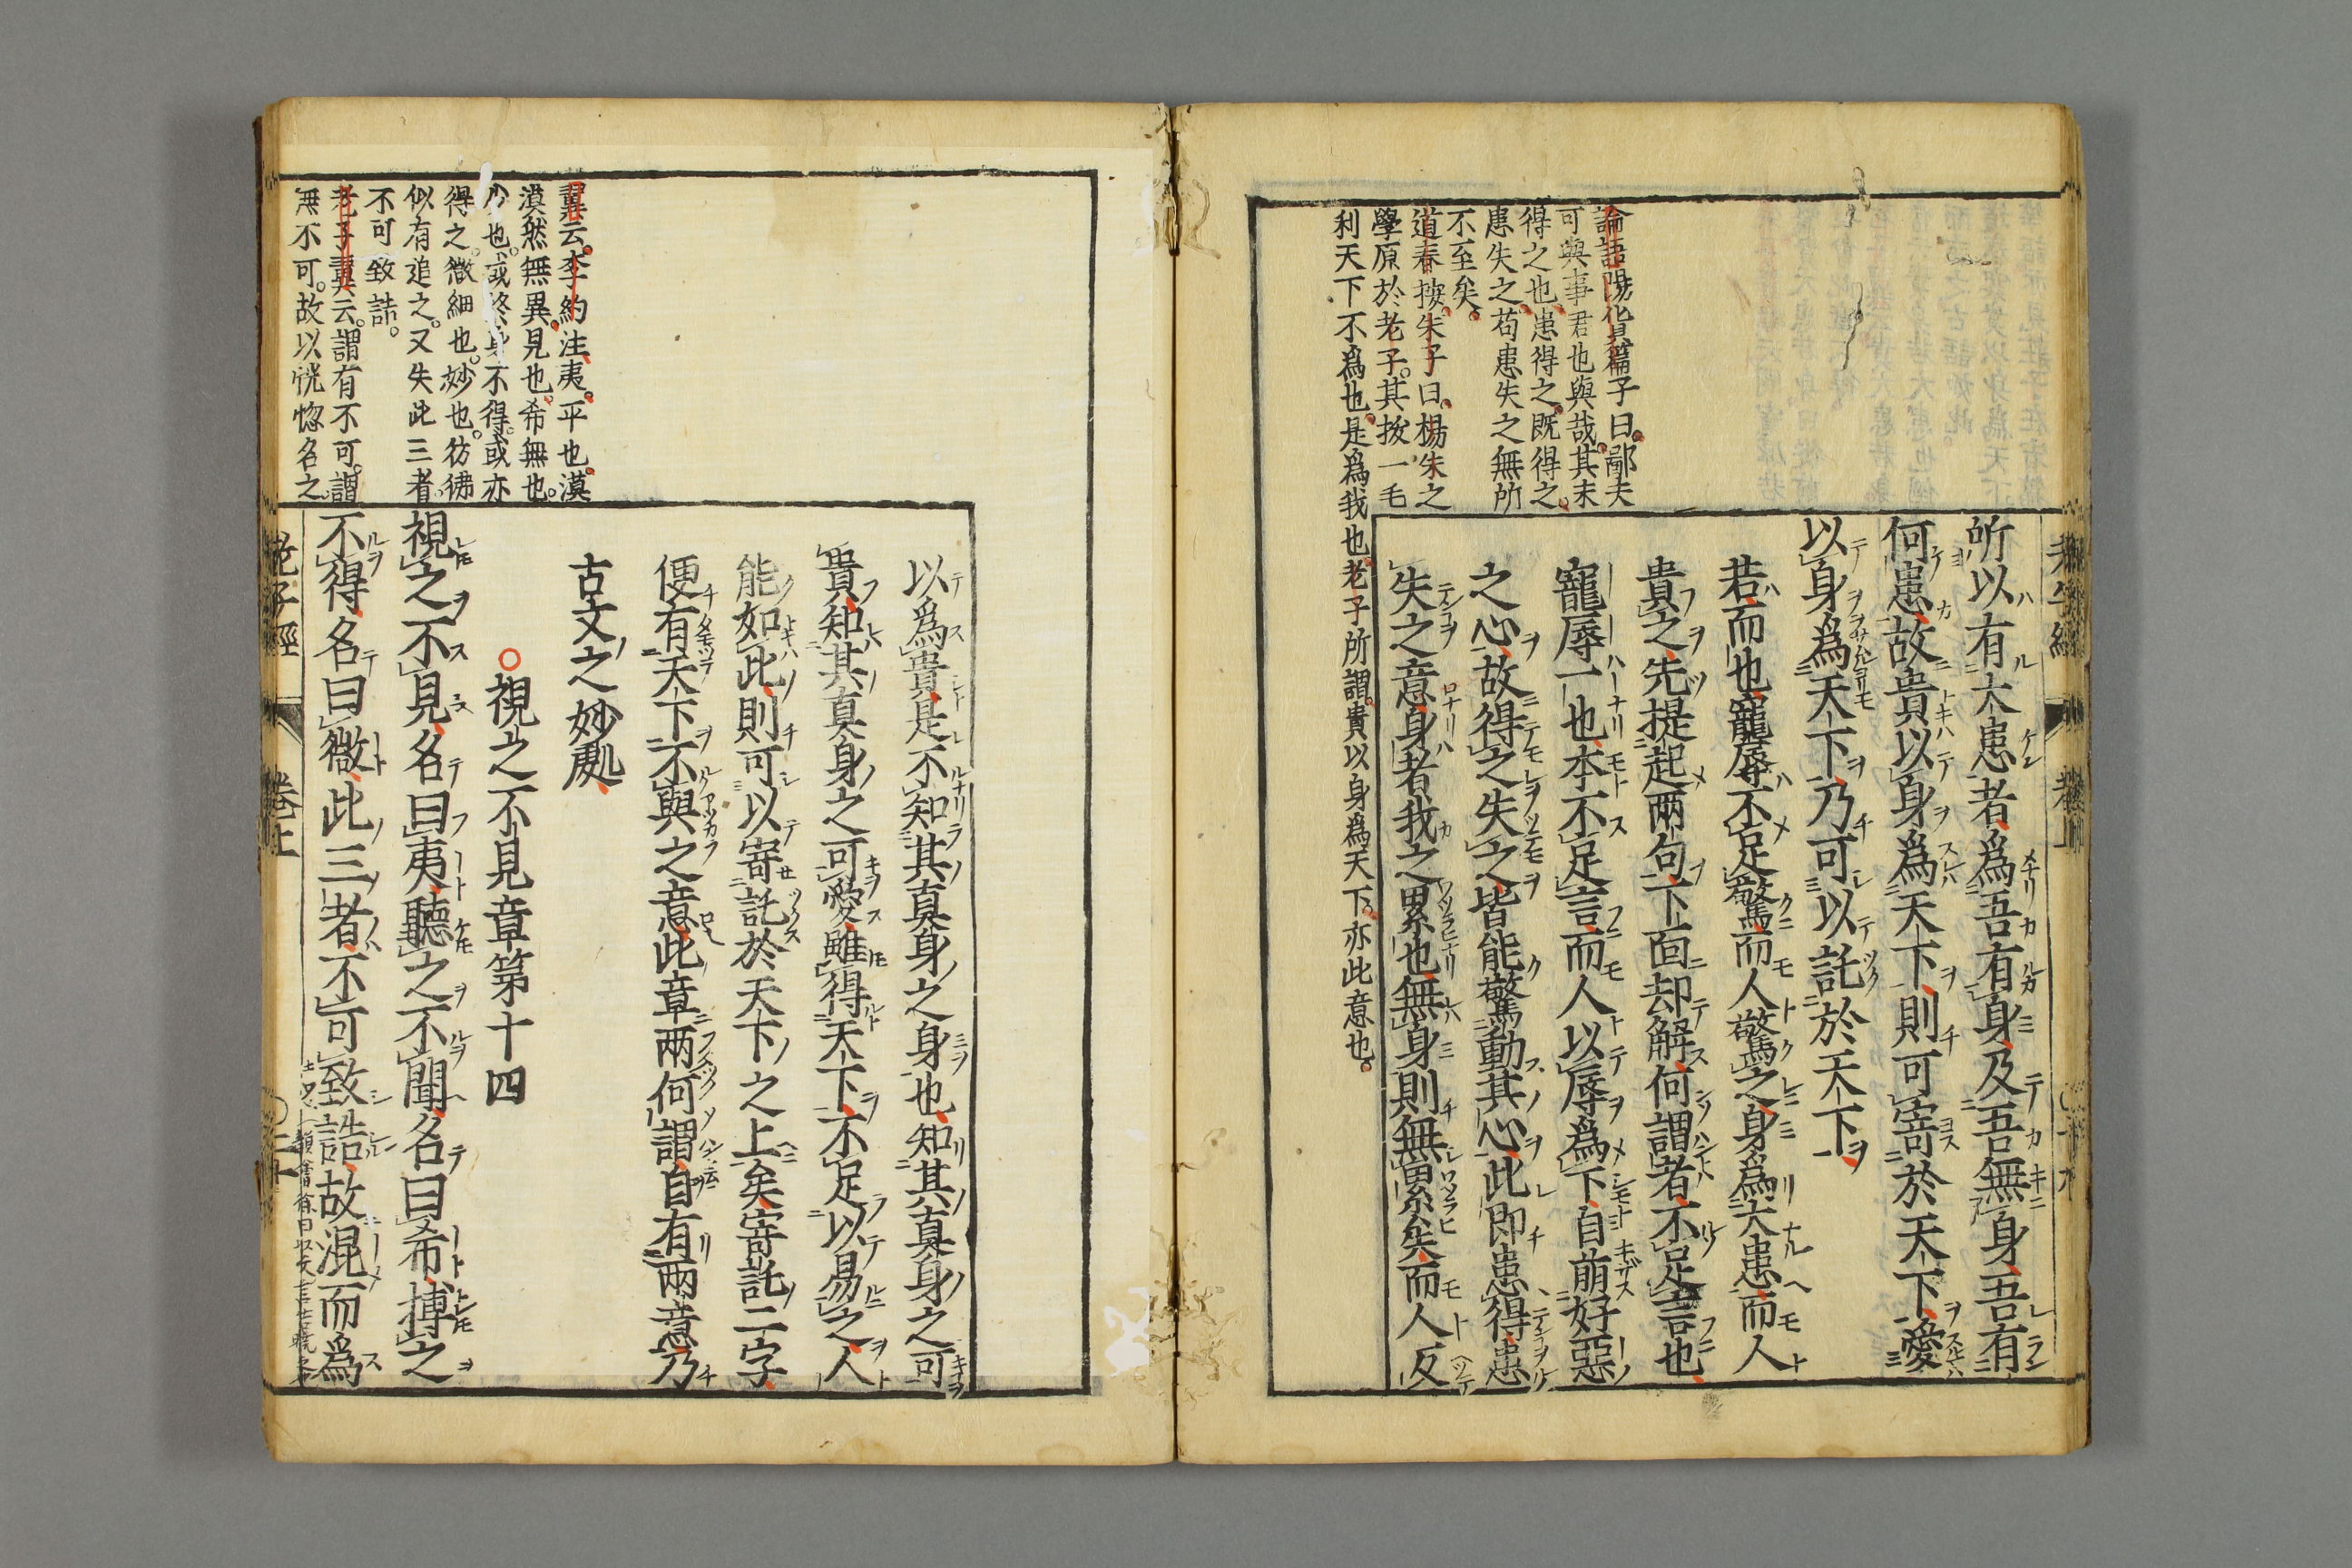 老子經 卷上
所以有大患者、爲吾有身、及吾無身、吾有
何患、故貴以身爲天下、則可寄於天下、愛
以身爲天下、乃可以託於天下、
若、而也、寵辱不足驚而人驚之、身爲大患、而人
貴之、先提起兩句、下面却解、何謂者、不足言也、
寵辱一也、本不足言、而人以辱爲下、自萌好惡
之心、故得之失之、皆能驚動其心、此即患得患
失之意、身者我之累也、無身則無累矣、而人反
論語陽貨篇子曰。鄙夫
可與事君也與哉。其未
得之也。患得之。既得之。
患失之。苟患失之無所
不至矣。
道春按。朱子曰。楊朱之
學原於老子。其拔一毛
利天下不爲也。是爲我也。老子所謂。貴以身爲天下。亦此意也。
以爲貴、是不知其真身之身也、知其真身之可
貴、知其真身之可愛、雖得天下、不足以易之、人
能如此、則可以寄託於天下之上矣、寄託二字
便有天下不與之意、此章兩何謂、自有兩意、乃
古文之妙處、
○視之不見章第十四
視之不見、名曰夷、聽之不聞、名曰希、搏之
不得、名曰微、此三者、不可致詰、故混而爲
翼云。李約注。夷。平也。漠
漠然無異。見也。希無也。
少也。或終身不得。或亦
得之。微細也。妙也。彷彿
似有追之。又失此三者。
不可致詰。
老子翼云。謂有不可。謂
無不可。故以恍惚名之。
老子經 卷上